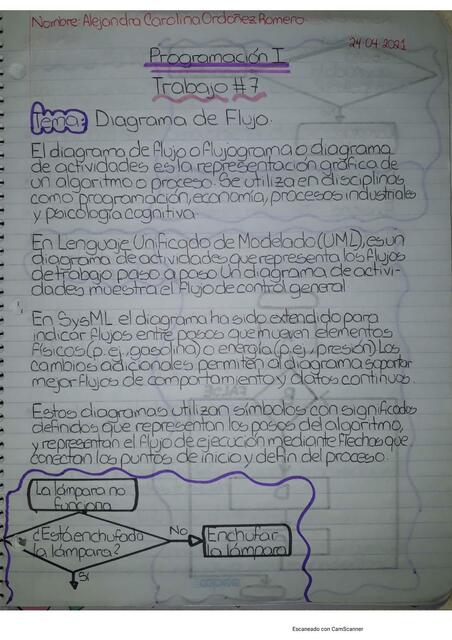 Nombre: Alejandra Carolina Ordoñez Romero
24·04·2021
Programación I
Trabajo #7
Tema: Diagrama de Flujo.
El diagrama de flujo o flujograma o diagrama
de actividades es la representación gráfica de
un algoritmo o proceso. Se utiliza en disciplinas
como programación, economía, procesos industriales
y psicología cognitiva.
En Lenguaje Unificado de Modelado (UML), es un
diagrama de actividades que representa los flujos
de trabajo paso a paso Un diagrama de activi-
dades muestra el flujo de control general
En SysML el diagrama ha sido extendido para
indicar flujos entre pasos que mueven elementos
físicos (p. ej., gasolina) o energía (p. ej., presión) Los
cambios adicionales permiten al diagrama soportar
mejor flujos de comportamiento y datos continuos.
Estos diagramas utilizan símbolos con significados
definidos que representan los pasos del algoritmo,
y representan el flujo de ejecución mediante flechas que
conectan los puntos de inicio y de fin del proceso.
La lámpara no
funciona
¿Está enchufada
la lámpara?
No
Enchufar
la lámpara
Sí
Escaneado con CamScanner